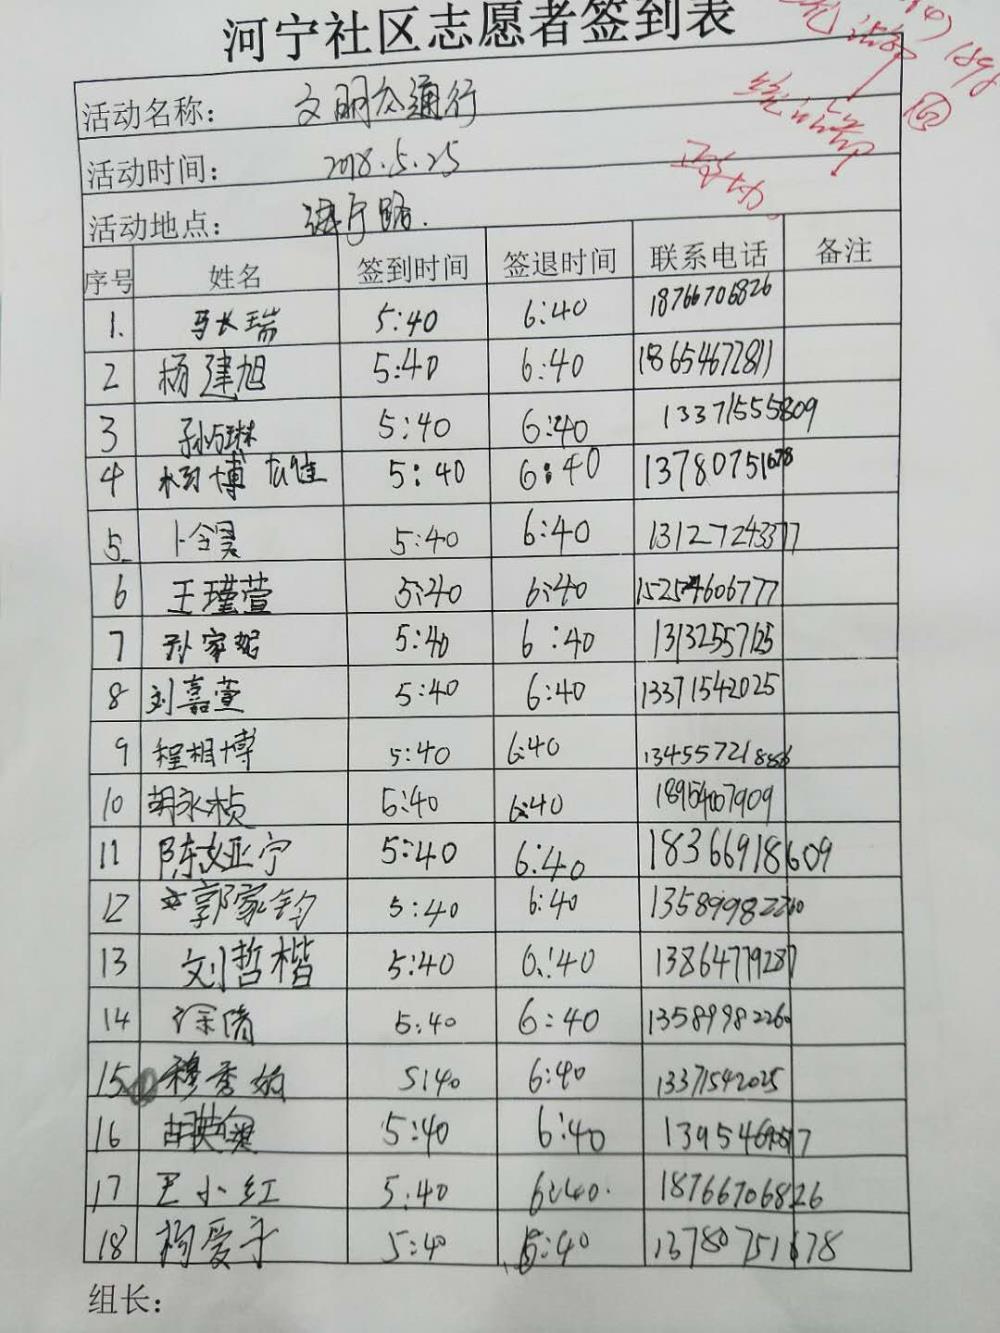 河宁社区志愿者签到表
活动名称: 文明交通行
活动时间: 2018.5.25
活动地点: 济宁路.
序号 姓名 签到时间 签退时间 联系电话 备注
1. 马长瑞 5:40 6:40 18766706826
2 杨建旭 5:40 6:40 18654672811
3 5:40 6:40 13371555809
4 5:40 6:40 13780751678
5 5:40 6:40 13127243377
6 王瑾萱 5:40 6:40 15254606777
7 孙家妮 5:40 6:40 13132557125
8 刘嘉萱 5:40 6:40 13371542025
9 程相博 5:40 6:40 13455721886
10 胡永桢 5:40 6:40 18954007909
11 陈姣亚宁 5:40 6:40 18366918609
12 郭家钧 5:40 6:40 13589982260
13 刘哲楷 5:40 6:40 13864779287
14 5:40 6:40 13589982260
15 穆秀娟 5:40 6:40 13371542025
16 5:40 6:40
17 王小红 5:40 6:40. 18766706826
18 杨爱于 5:40 6:40 13780751678
组长: